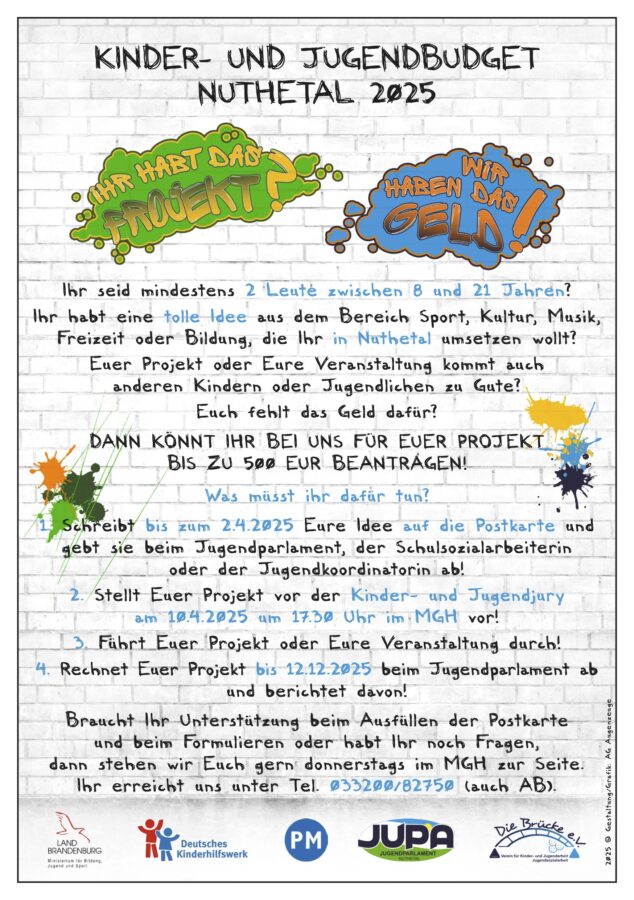 KINDER- UND JUGENDBUDGET
NUTHETAL 2025
IHR HABT DAS
PROJEKT?
WIR
HABEN DAS
GELD!
Ihr seid mindestens 2 Leute zwischen 8 und 21 Jahren?
Ihr habt eine tolle Idee aus dem Bereich Sport, Kultur, Musik,
Freizeit oder Bildung, die Ihr in Nuthetal umsetzen wollt?
Euer Projekt oder Eure Veranstaltung kommt auch
anderen Kindern oder Jugendlichen zu Gute?
Euch fehlt das Geld dafür?
DANN KÖNNT IHR BEI UNS FÜR EUER PROJEKT
BIS ZU 500 EUR BEANTRAGEN!
Was müsst ihr dafür tun?
1. Schreibt bis zum 2.4.2025 Eure Idee auf die Postkarte und
gebt sie beim Jugendparlament, der Schulsozialarbeiterin
oder der Jugendkoordinatorin ab!
2. Stellt Euer Projekt vor der Kinder- und Jugendjury
am 10.4.2025 um 17.30 Uhr im MGH vor!
3. Führt Euer Projekt oder Eure Veranstaltung durch!
4. Rechnet Euer Projekt bis 12.12.2025 beim Jugendparlament ab
und berichtet davon!
Braucht Ihr Unterstützung beim Ausfüllen der Postkarte
und beim Formulieren oder habt Ihr noch Fragen,
dann stehen wir Euch gern donnerstags im MGH zur Seite.
Ihr erreicht uns unter Tel. 033200/82750 (auch AB).
2025 © Gestaltung/Grafik: AG Augenzeuge
LAND
BRANDENBURG
Ministerium für Bildung,
Jugend und Sport
Deutsches
Kinderhilfswerk
PM
JUPA
JUGENDPARLAMENT
NUTHETAL
Die Brücke e.V.
Verein für Kinder- und Jugendarbeit
Jugendsozialarbeit